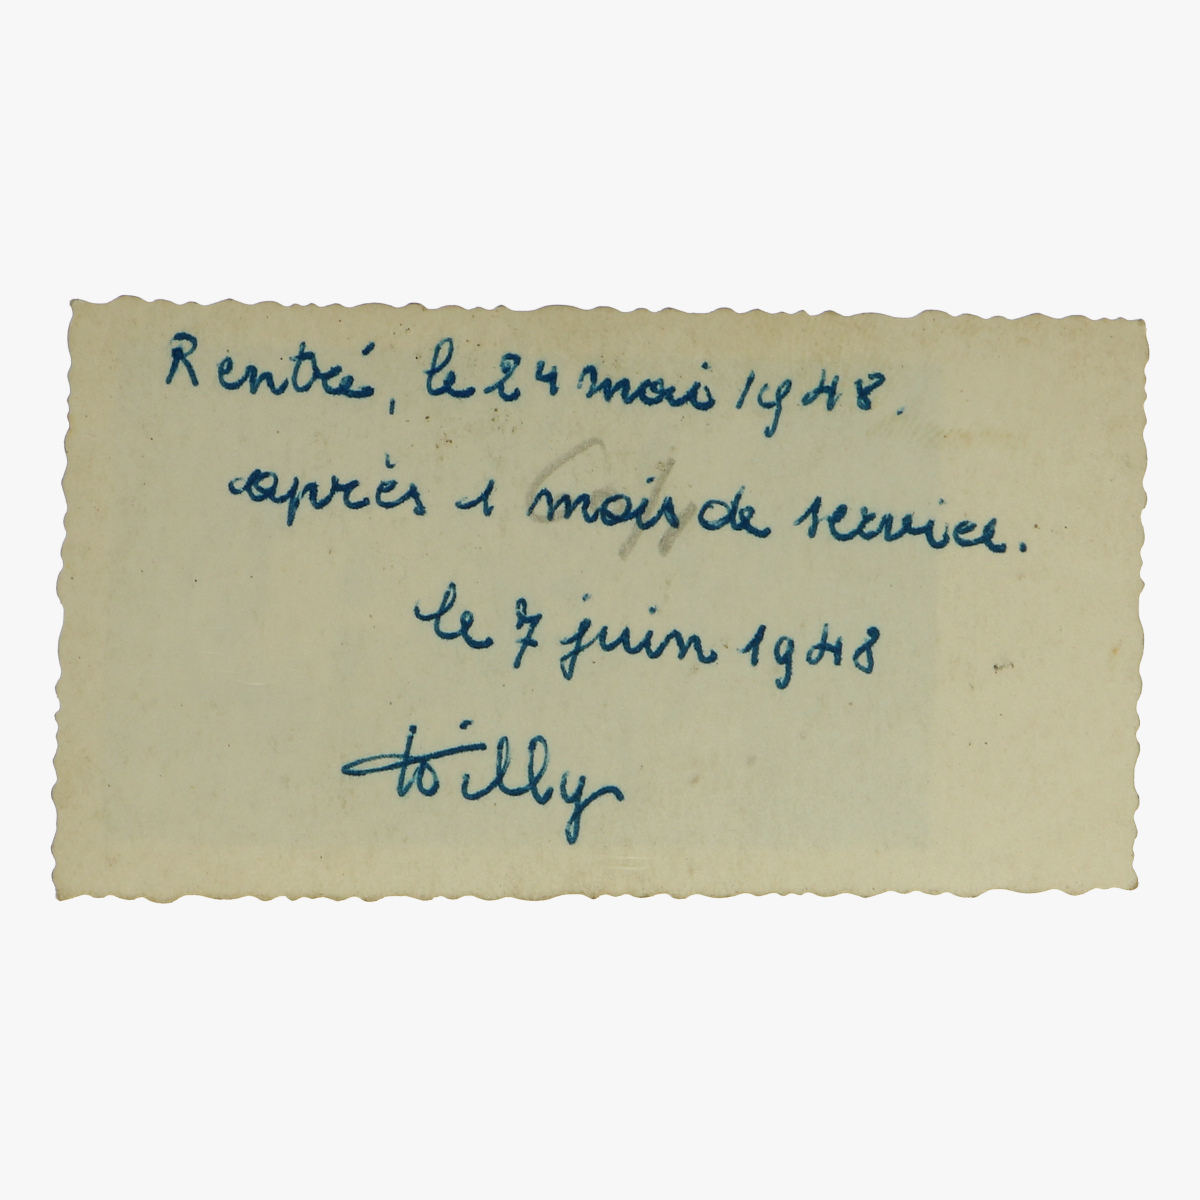 Rentré, le 24 mai 1948.
après 1 mois de service.
le 7 juin 1948
Willy